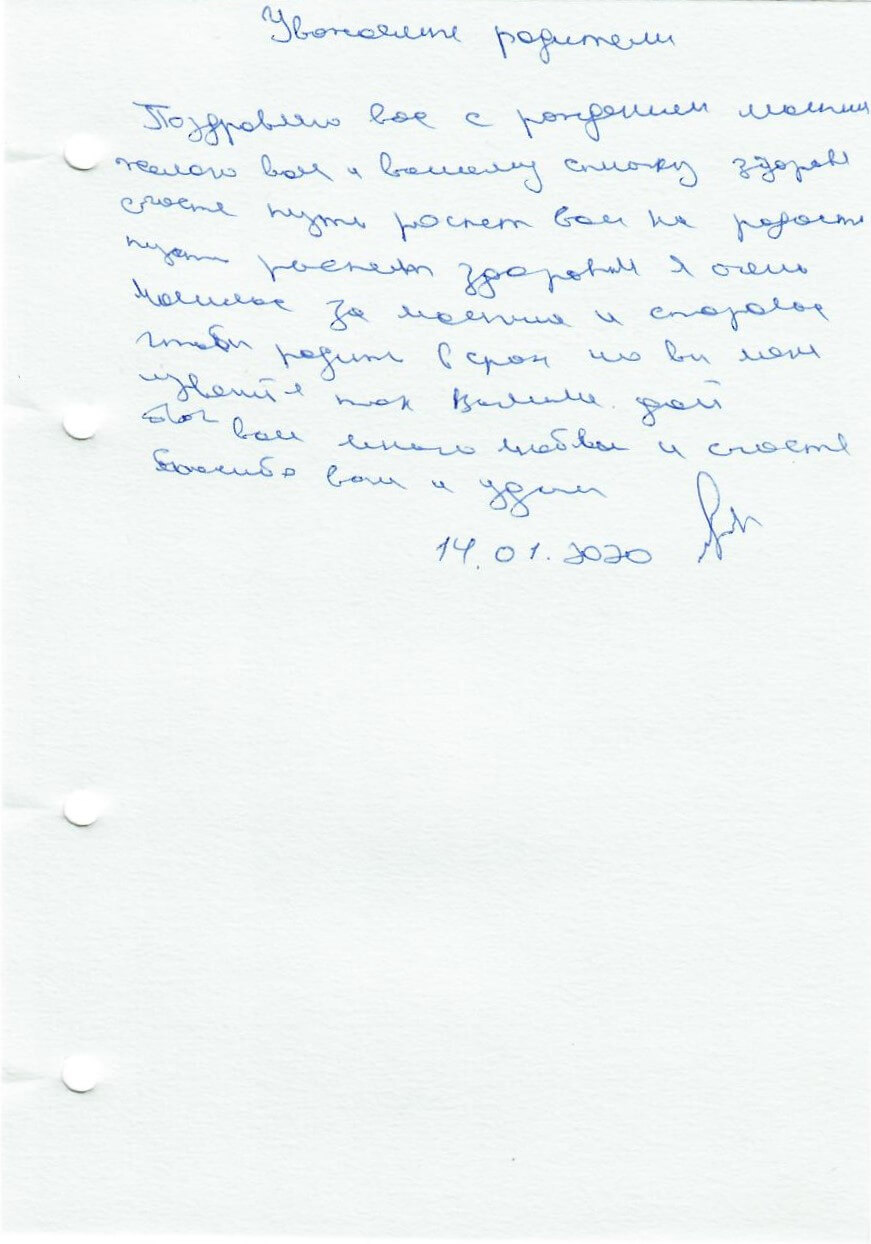 Уважаемие родители
Поздравляю вас с рождением малчика
желаю вам и вашему сыноку здоров
счасте пусть растет вам на радость
пусть растет здоровим я очень
за малчика и старалас
чтоби родит в срок но ви мен
извените так дай
бог вам много любви и счасте
спасибо вам и удачи
14.01.2020